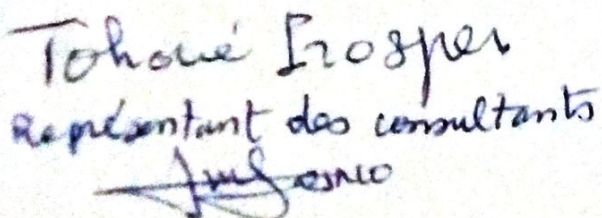 Tohoué Prosper
Représentant des consultants